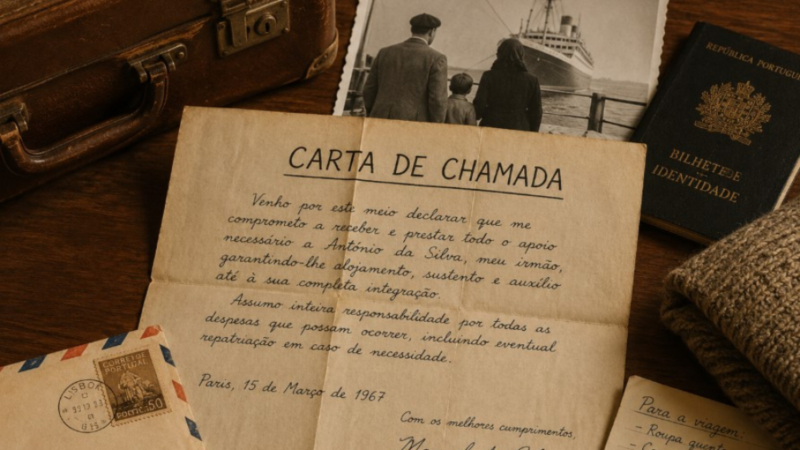 REPÚBLICA PORTUGUE
BILHETE DE
IDENTIDADE
CARTA DE CHAMADA
Venho por este meio declarar que me
comprometo a receber e prestar todo o apoio
necessário a António da Silva, meu irmão,
garantindo-lhe alojamento, sustento e auxílio
até à sua completa integração.
Assumo inteira responsabilidade por todas as
despesas que possam ocorrer, incluindo eventual
repatriação em caso de necessidade.
Paris, 15 de Março de 1967
Com os melhores cumprimentos,
CORREIOS
PORTUGAL
50
LISBOA
Para a viagem:
- Roupa quente